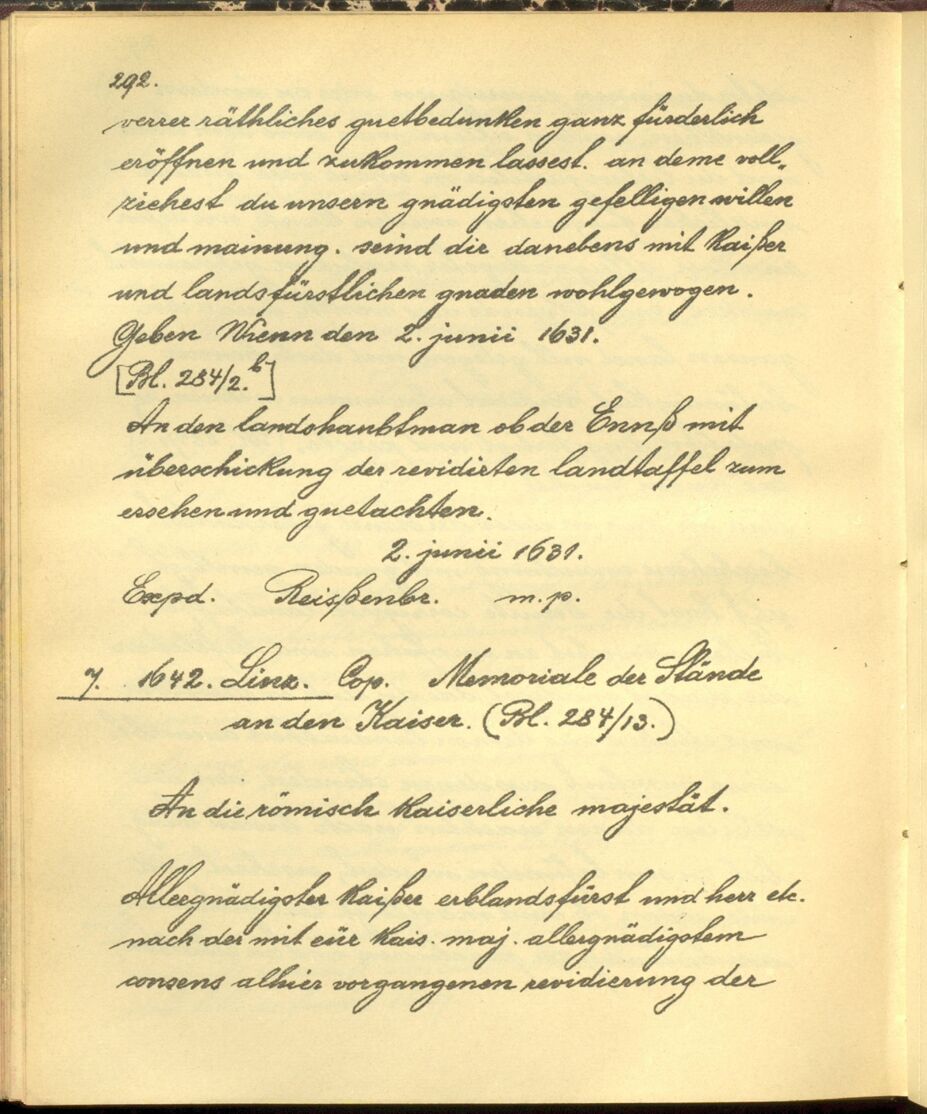 292.
verrer räthliches guetbedunken ganz fürderlich
eröffnen und zukommen lassest. an deme voll„
ziehest du unsern gnädigsten gefelligen willen
und mainung. seind dir danebens mit kaißer
und landsfürstlichen gnaden wohlgewogen.
Geben Wienn den 2. junii 1631.
[Bl. 284/2.b]
An den landshaubtman ob der Ennß mit
überschickung der revidirten landtaffel zum
ersehen und guetachten.
2. junii 1631.
Expd. Reißenbr. m.p.
7. 1642. Linz. Cop. Memoriale der Stände
an den Kaiser. (Bl. 284/13.)
An die römisch kaiserliche majestät.
Allergnädigster kaißer erblandsfürst und herr etc.
nach der mit eür kais. maj. allergnädigstem
consens alhier vorgangenen revidierung der